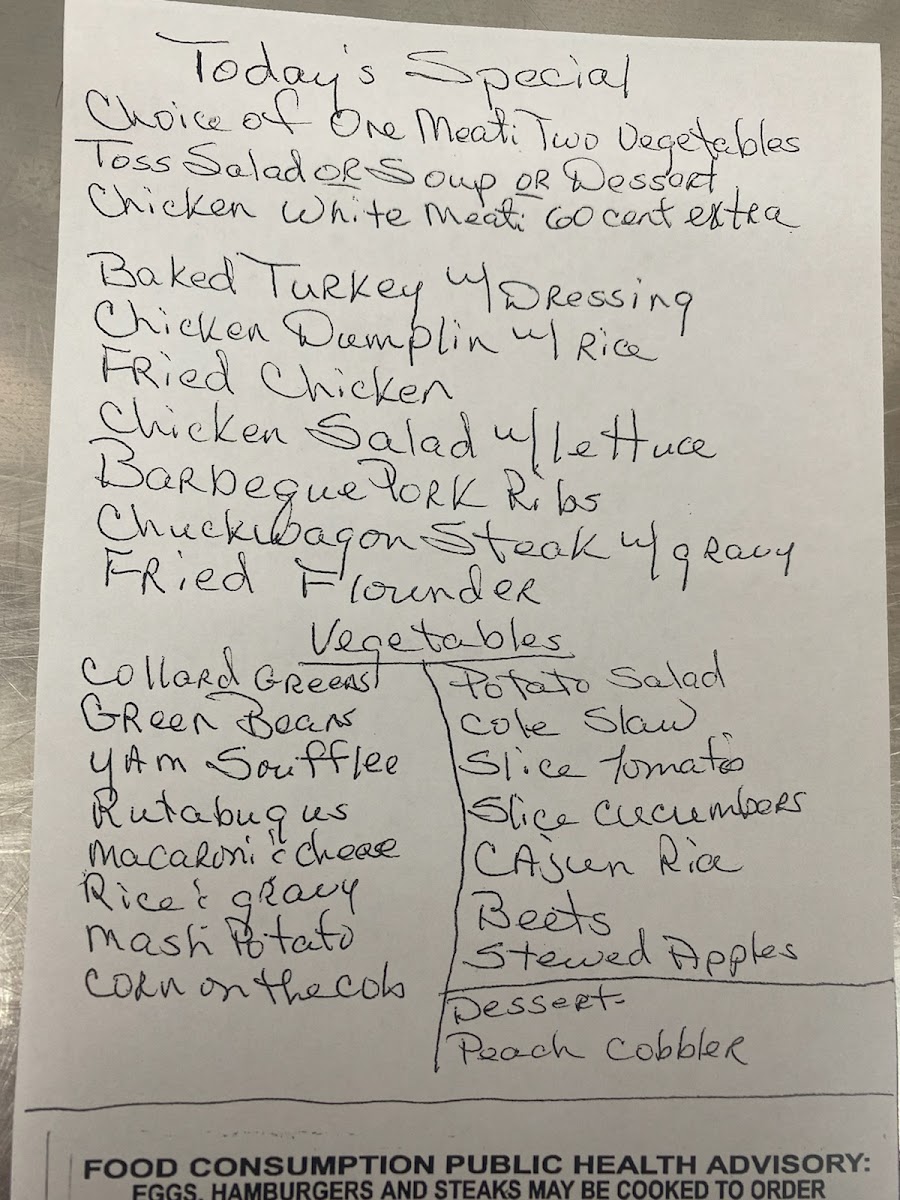 Today's Special
Choice of One Meat: Two Vegetables
Toss Salad OR Soup OR Dessert
Chicken White Meat: 60 cent extra
Baked Turkey w/ Dressing
Chicken Dumplin w/ Rice
Fried Chicken
Chicken Salad w/ lettuce
Barbeque Pork Ribs
Chuckwagon Steak w/ gravy
Fried Flounder
Vegetables
Collard Greens
Green Beans
Yam Soufflee
Rutabugus
Macaroni & cheese
Rice & gravy
Mash Potato
Corn on the cob
Potato Salad
Cole Slaw
Slice Tomato
Slice Cucumbers
Cajun Rice
Beets
Stewed Apples
Dessert-
Peach Cobbler
FOOD CONSUMPTION PUBLIC HEALTH ADVISORY:
EGGS, HAMBURGERS AND STEAKS MAY BE COOKED TO ORDER